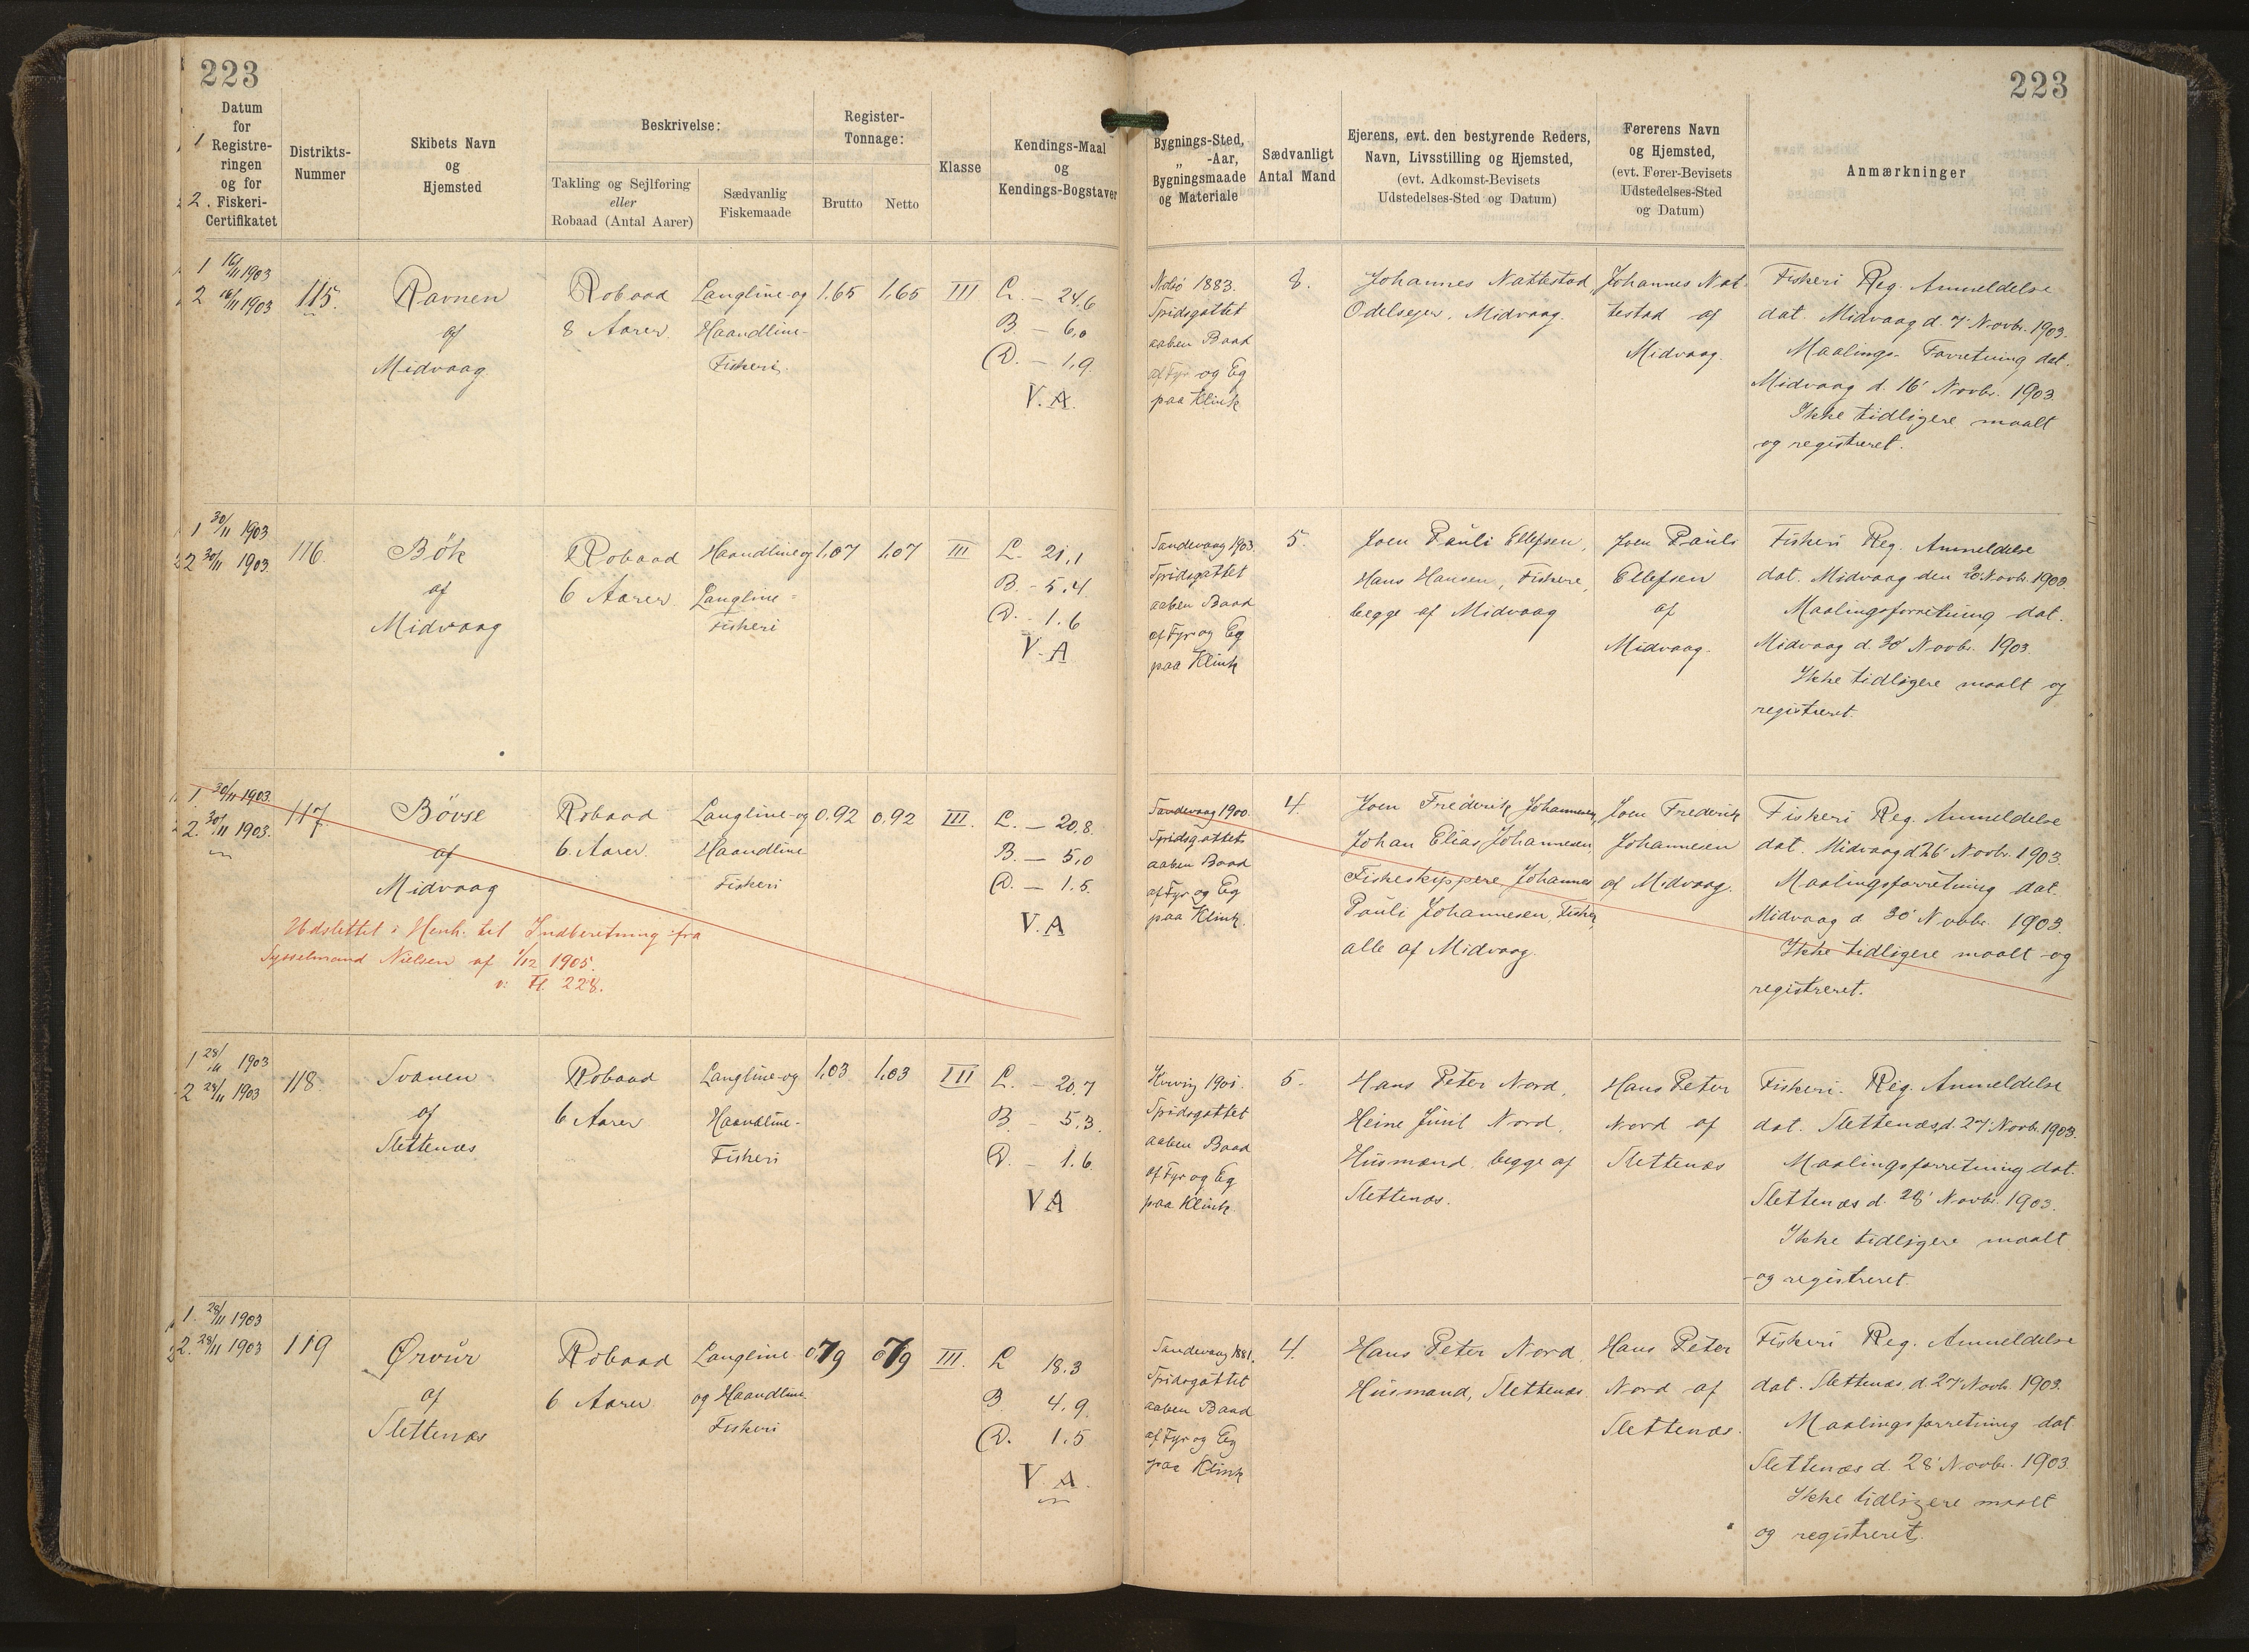 223
223
Datum
for
Registre-
ringen
og for
Fiskeri-
Certifikatet
1
2.
Distrikts-
Nummer
Skibets Navn
og
Hjemsted
Beskrivelse:
Takling og Sejlføring
eller
Robaad (Antal Aarer)
Sædvanlig
Fiskemaade
Register-
Tonnage:
Brutto
Netto
Klasse
Kendings-Maal
og
Kendings-Bogstaver
Bygnings-Sted,
„ -Aar,
Bygningsmaade
og Materiale
Sædvanligt
Antal Mand
Ejerens, evt. den bestyrende Reders,
Navn, Livsstilling og Hjemsted,
(evt. Adkomst-Bevisets
Udstedelses-Sted og Datum)
Førerens Navn
og Hjemsted,
(evt. Fører-Bevisets
Udstedelses-Sted
og Datum)
Anmærkninger
1 16/11 1903
2 16/11 1903
115.
Ravnen
af
Midvaag
Robaad
8 Aarer
Langline og
Haandline-
Fiskeri
1,65
1,65
III
L. – 24,6
B. – 6,0
D. – 1,9
V.A.
Nolsö 1883.
Spidsgattet
aaben Baad
af Fyr og Eg
paa Klink
8.
Johannes Nattestad,
Odelsejer, Midvaag.
Johannes Nat-
testad af
Midvaag.
Fiskeri Reg. Anmeldelse
dat. Midvaag d. 7' Novbr. 1903.
Maalings- Forretning dat.
Midvaag d. 16' Novbr. 1903.
Ikke tidligere maalt
og registreret.
1 30/11 1903
2 30/11 1903
116.
Bök
af
Midvaag
Robaad
6 Aarer
Haandline og
Langline-
Fiskeri
1,07
1,07
III
L. 21,1
B. - 5,4
D. - 1.6
V.A
Sandevaag 1903.
Spidsgattet
aaben Baad
af Fyr og Eg
paa Klink
5.
Joen Pauli Ellefsen,
Hans Hansen, Fiskere,
begge af Midvaag
Joen Pauli
Ellefsen
af
Midvaag.
Fiskeri Reg. Anmeldelse
dat. Midvaag den Novbr. 1903.
Maalingsforretning dat.
Midvaag d. 30' Novbr. 1903.
Ikke tidligere maalt og
registreret.
1. 30/11 1903.
2. 30/11 1903.
117.
Bövse
af
Midvaag
Robaad
6. Aarer.
Langline-og
Haandline
Fiskeri
0.92
0,92
III.
L. – 20,8.
B. – 5,0
D. – 1.5.
V.A
Udslettet i Henh. til Indberetning fra
Sysselmand Nielsen af 1/12 1905.
v. Fl. 228.
Sandevaag 1900.
Spidsgattet
aaben Baad
af Fyr og Eg
paa Klink.
4.
Joen Frederik Johannesen,
Johan Elias Johannesen,
Fiskeskippere, Johannes
Pauli Johannesen, Fisker,
alle af Midvaag.
Joen Frederik
Johannesen
af Midvaag.
Fiskeri Reg. Anmeldelse
dat. Midvaag d 26' Novbr. 1903.
Maalingsforretning dat.
Midvaag d 30' Novbr. 1903.
Ikke tidligere maalt og
registreret.
1 28/11 1903
2 28/11 1903
118.
Svanen
af
Slettenæs
Robaad
6 Aarer
Langline-og
Haandline-
Fiskeri
1,03
1,03
III
L. – 20.7
B. – 5.3.
D. – 1.6.
VA
1901.
Spidsgattet
aaben Baad
af Fyr og Eg
paa Klink.
5.
Hans Peter Nord,
Heine Juul Nord,
Husmænd, begge af
Slettenæs.
Hans Peter
Nord af
Slettenæs
Fiskeri. Reg. Anmeldelse
dat. Slettenæs, d. 27' Novbr. 1903.
Maalingsforretning dat.
Slettenæs d. 28' Novbr. 1903.
Ikke tidligere maalt
og registreret.
1. 28/11 1903
2. 28/11 1903
119
Ørvur
af
Slettenæs
Robaad
6 Aarer
Langline
og Haandline
Fiskeri
0,79
0,79
III.
L 18.3
B 4,9.
D. 1.5
V.A.
Sandevaag 1881.
Spidsgattet
aaben Baad
af Fyr og Eg
paa Klink
4.
Hans Peter Nord,
Husmand, Slettenæs
Hans Peter
Nord af
Slettenæs.
Fiskeri Reg. Anmeldelse
dat. Slettenæs, d. 27' Novbr. 1903.
Maalingsforretning dat
Slettenæs d. 28' Novbr. 1903.
Ikke tidligere maalt
og registreret.